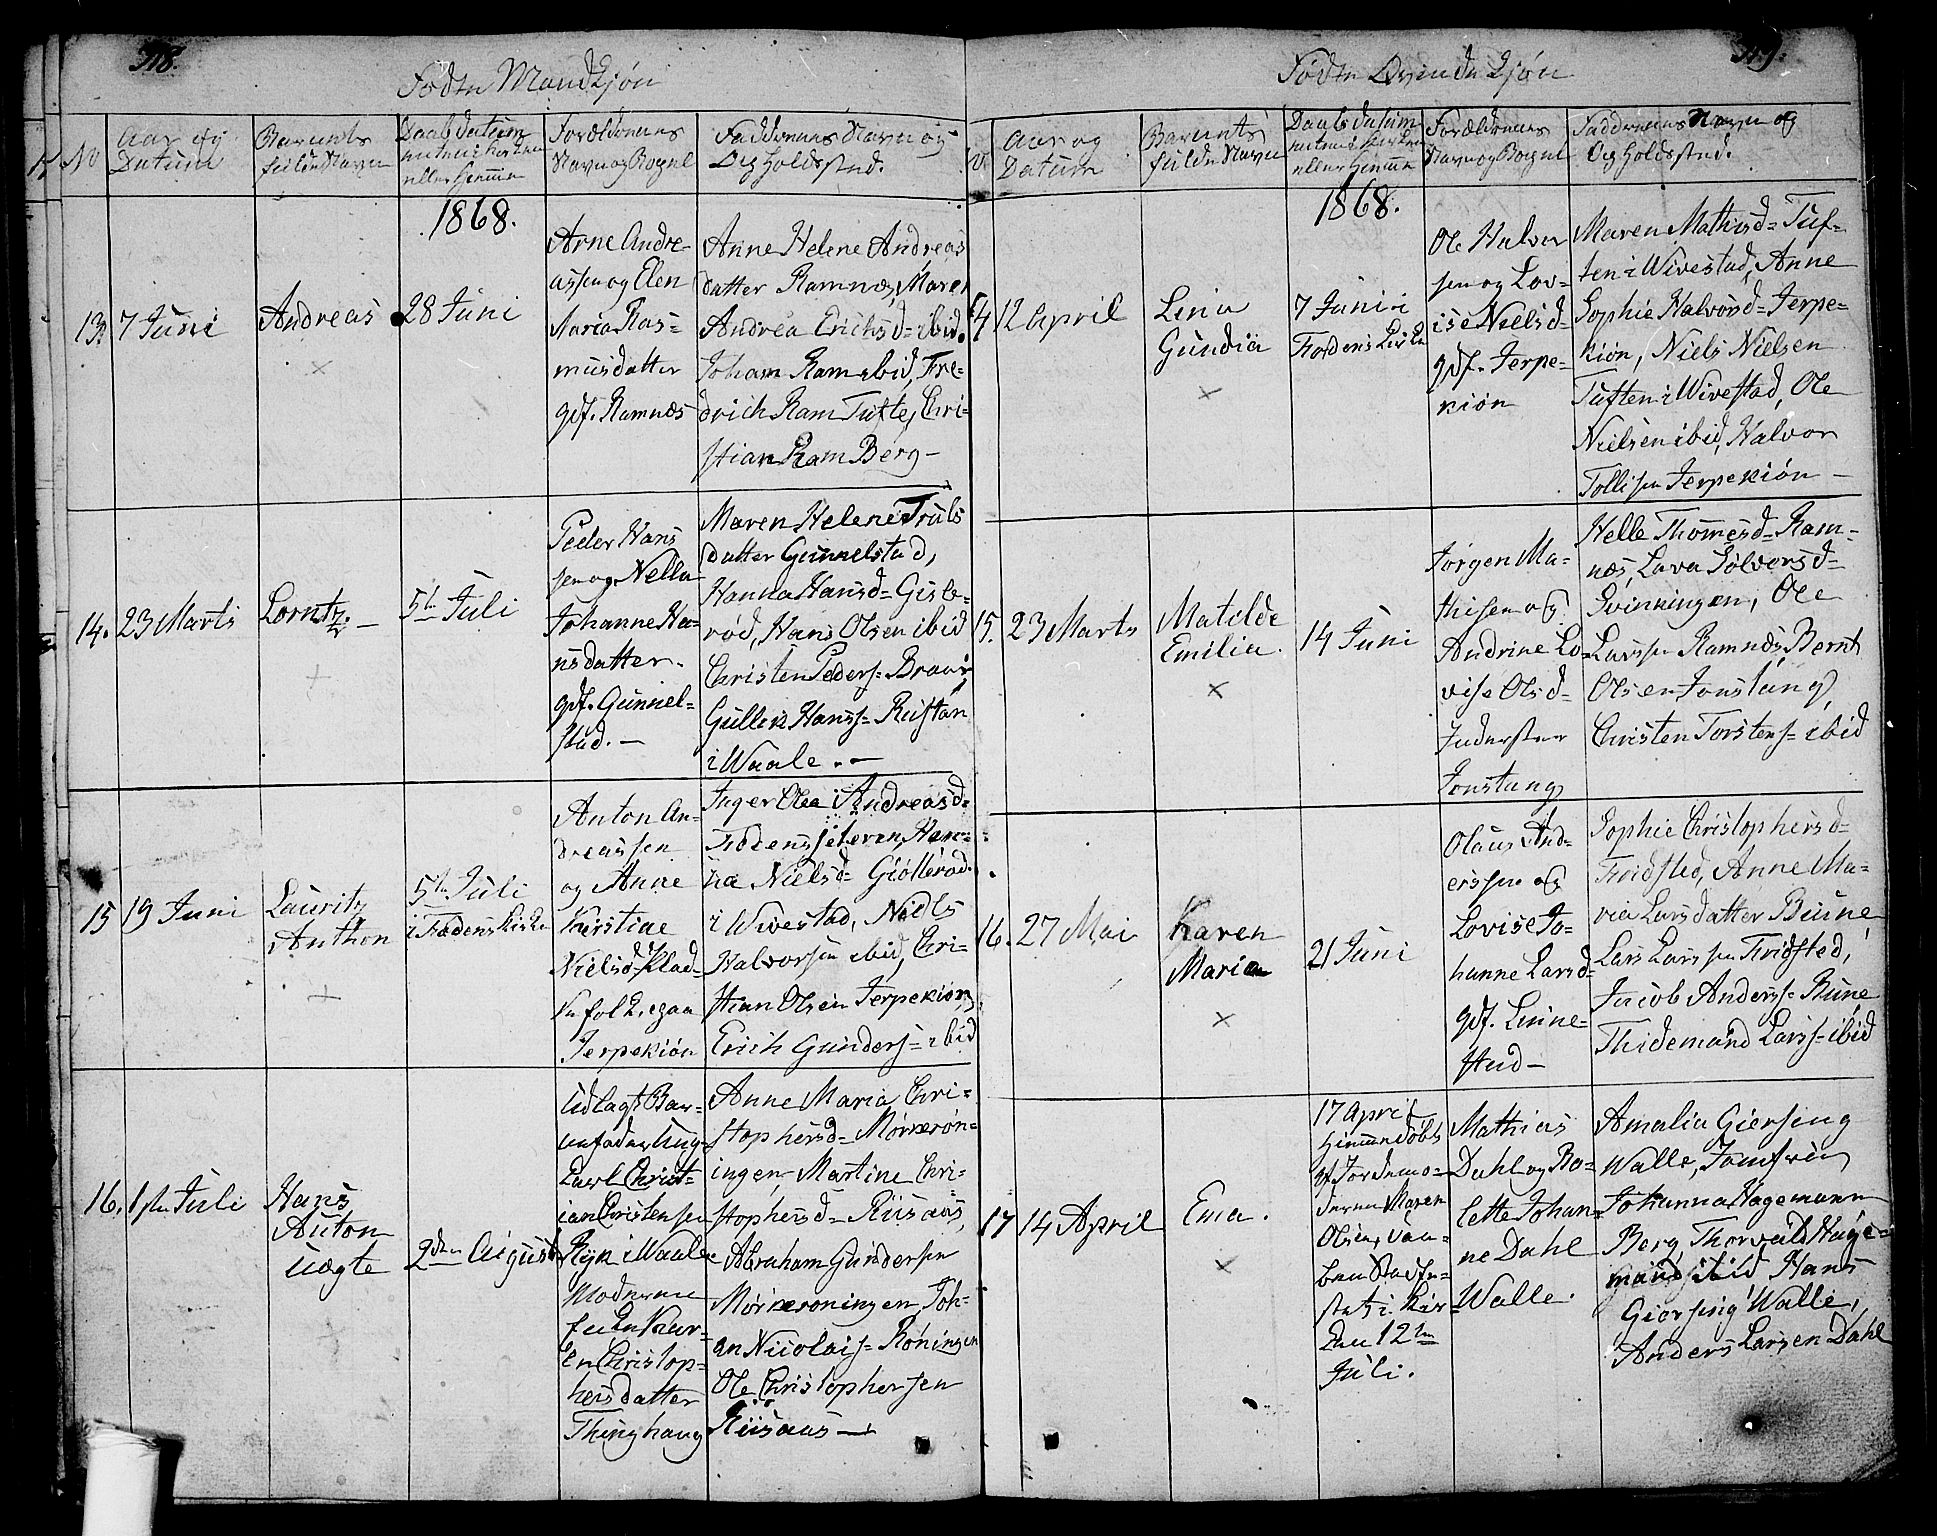 318.
Fødte Mandkjøn
No
Aar og
Datum
Barnets
fulde Navn
Daabsdatum
enten i Kirken
eller Hiemme
Forældrenes
Navn og Bopæl
Faddrenes Navn og
Opholdssted.
1868.
13.
7 Juni
Andreas
28 Juni
Arne Andre-
assen og Elen
Maria Ras-
musdatter
gdf. Ramnæs
Anne Helene Andreas
datter Ramnæs, Maren
Andrea Erichsd= ibid.
Joham Ram ibid, Fre-
drich Ram Tufte, Chri-
stian Ram Berg-
14.
23 Marts
Lorntz. –
5te Juli
Peder Hans
sen og Nella
Johanne Ha-
nsdatter.
gdf. Gunnel-
stad. –
Maren Helene Truls
datter Gunnelstad,
Hanna Hansd= Gisle-
rød, Hans Olsen ibid
Christen Peders= Braar
Gullik Hanss= Rustan
i Waale. –
15
19 Juni
Lauritz
Anthon
5te Juli
i Fodens Kirke
Anton An-
dreassen
og Anne
Kirstine
Nielsd= Plad-
sefolk paa
Jerpekiøn
Inger Olea Andreasd=
Fodenssæteren, Han-
na Nielsd= Giøllerød
i Wivestad, Niels
Halvorsen ibid, Chri-
stian Olsen Jerpekiøn,
Erich Gunders= ibid
16.
1ste Juli
Hans
Anton
uægte
2den August
Udlagt Bar-
nefader Ung-
karl Christ-
ian Christensen
Ryk i Waale
Moderen
Pigen Kar-
en Christop-
hersdatter
Thinghaug
Anne Maria Chri-
stophersd= Mørkerøn-
ingen, Martine Chri-
stophersd= Riisaas,
Abraham Gundersen
Mørkeroningen, Joh-
an Nicolais= Røningen
Ole Christophersen
Riisaas –
319.
Fødte Qvindekjøn
Aar og
Datum
Barnets
fulde Navn
Daabsdatum
enten i Kirken
eller Hiemme
Forældrenes
Navn og Bopæl
Faddrenes Navn og
Opholdssted.
1868.
14
12 April
Lina
Gundia
7 Juni i
Fordens Kirke
Ole Halvor
sen og Lov-
ise Nielsd=
gdf. Jerpe-
kiøn
Maren Mathisd= Tuf-
ten i Wivestad, Anne
Sophie Halvorsd= Jerpe-
kiøn, Niels Nielsen
Tuften i Wivestad, Ole
Nielsen ibid, Halvor
Tollisen Jerpekiøn –
15.
23 Marts
Matilde
Emilia.
14 Juni
Jørgen Ma-
thisen og
Andrine Lo-
vise Olsd=
Inderster
Jonstang
Helle Thomesd= Ram-
næs, Lava Sølversd=
Svinningen, Ole
Larssen Ramnæs Bernt
Olsen Jonstang,
Christen Torstens= ibid
16.
27 Mai
Karen
Maria
21 Juni
Olaus And-
erssen og
Lovise Jo-
hanne Larsd=
gdf. Linne-
stad –
Sophie Christophersd=
Fridsted, Anne Ma-
ria Larsdatter Bune,
Lars Larssen Fridsted,
Jacob Anderss= Bune
Thidemand Larss= ibid
17
14 April
Ema.
17 April
Hiemmedøbt
af Jordemo-
deren Maren
Olsen, Daa-
ben Stadfæ-
stet i Kir-
den 12te
Juli.
Mathias
Dahl og Bo-
lette Johan-
ne Dahl
Walle.
Amalia Giersing
Walle, Jomfru
Johanna Hagemann
Berg, Thorvald Hage-
mand ibid Hans
Giersing Walle,
Anders Larsen Dahl